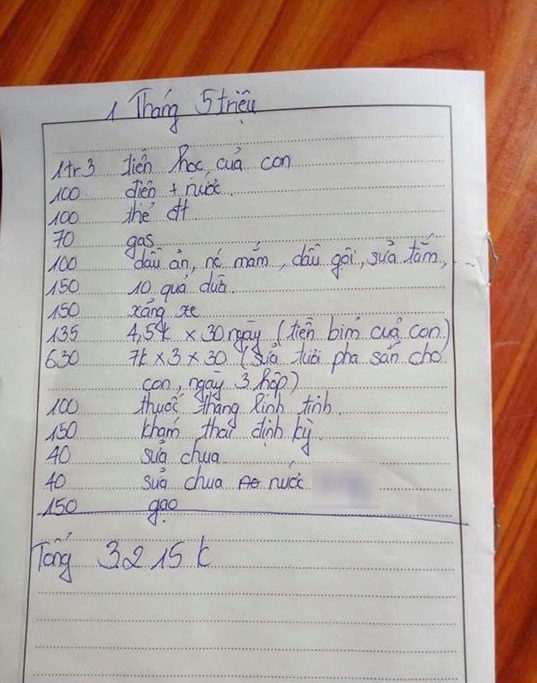 1 Tháng 5 triệu
1tr3 tiền học của con
100 điện + nước
100 thẻ đt
70 gas
100 dầu ăn, nc mắm, dầu gội, sữa tắm, ...
150 10 quả dừa
150 xăng xe
135 4,5k x 30 ngày (tiền bỉm của con)
630 7k x 3 x 30 (sữa tươi pha sẵn cho
con, ngày 3 hộp)
100 thuốc thang linh tinh.
150 khám thai định kỳ
40 sữa chua
40 sữa chua nước
150 gạo
Tổng 3215k